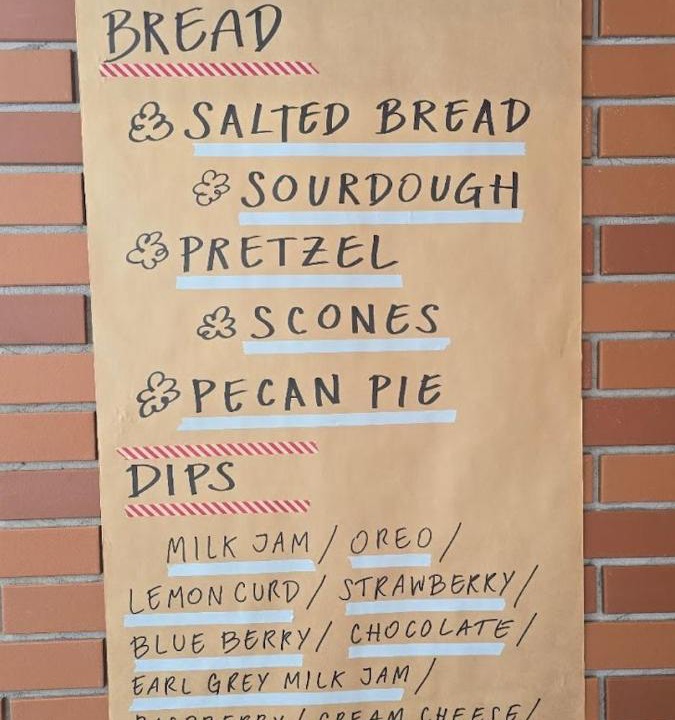 BREAD
SALTED BREAD
SOURDOUGH
PRETZEL
SCONES
PECAN PIE
DIPS
MILK JAM / OREO /
LEMON CURD / STRAWBERRY /
BLUE BERRY / CHOCOLATE /
EARL GREY MILK JAM /
/ CREAM CHEESE /